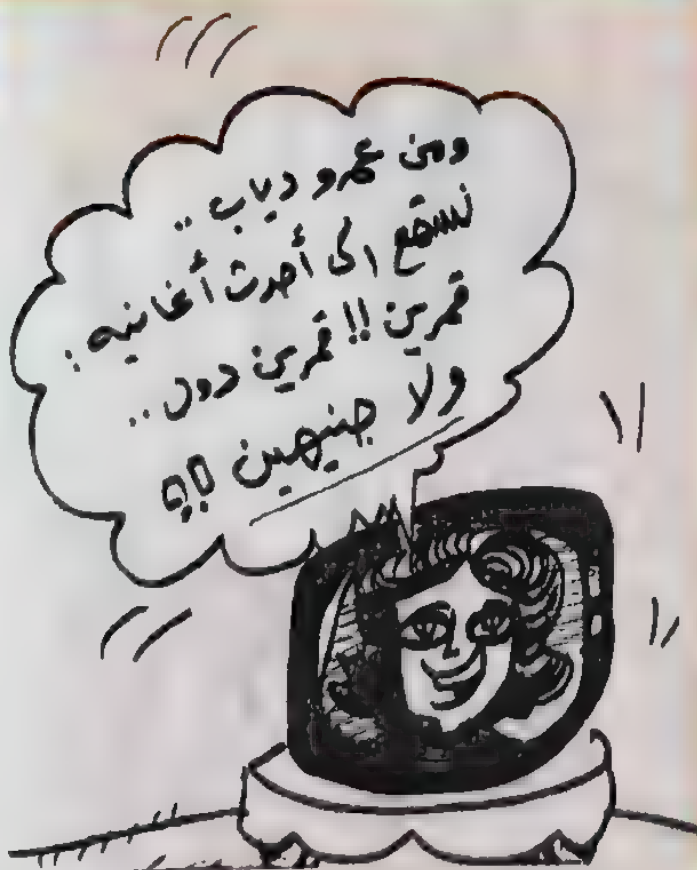 ومن عمرو دياب ..
نستمع الى أحدث أغانيه :
قمرين !! قمرين دول ..
ولا جنيهين !!